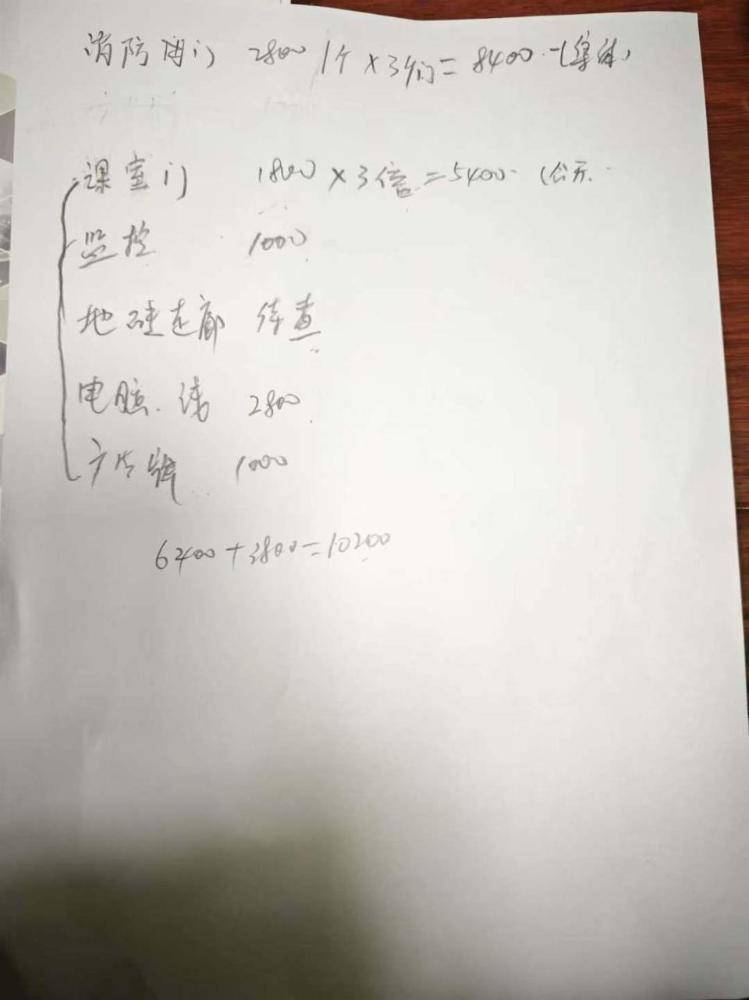 消防门 2800 1个×3个门=8400 (集体)
课室门 1800×3倍=5400 (公开
监控 1000
地砖走廊 待查
电脑、线 2800
广告牌 1000
6400+3800=10200